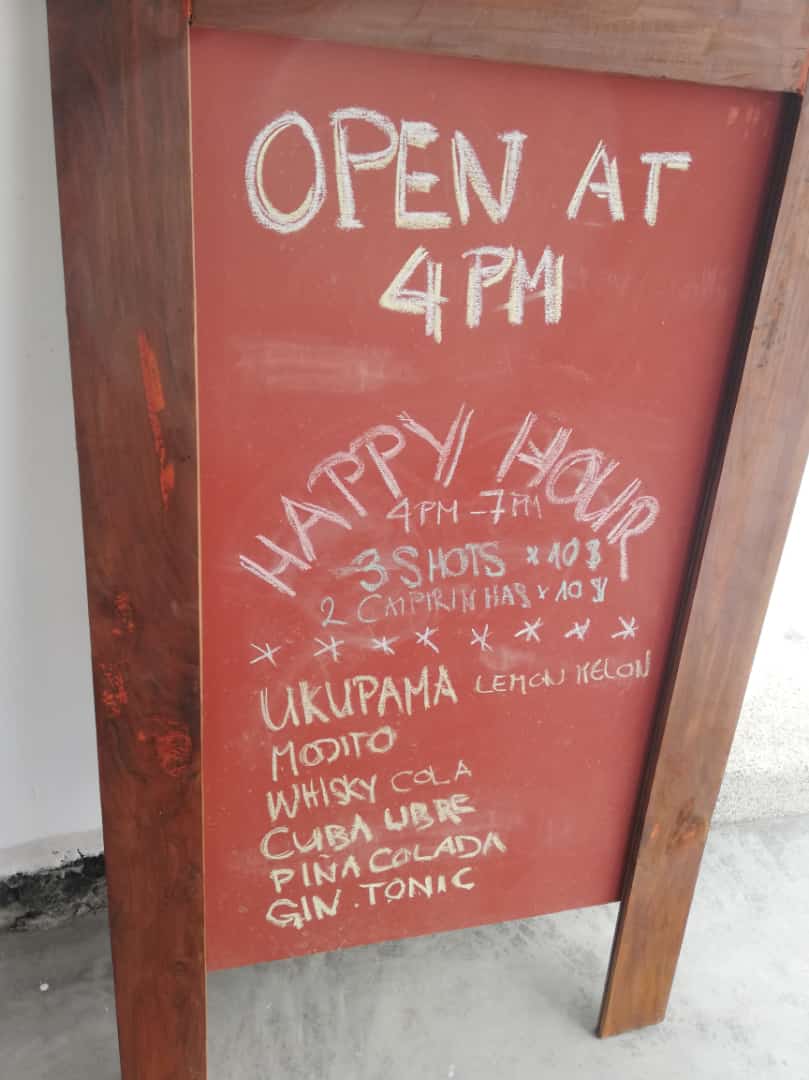 OPEN AT
4PM
HAPPY HOUR
4PM - 7PM
3 SHOTS x 10$
2 CAIPIRINHAS x 10$
UKUPAMA LEMON MELON
MOJITO
WHISKY COLA
CUBA LIBRE
PIÑA COLADA
GIN . TONIC